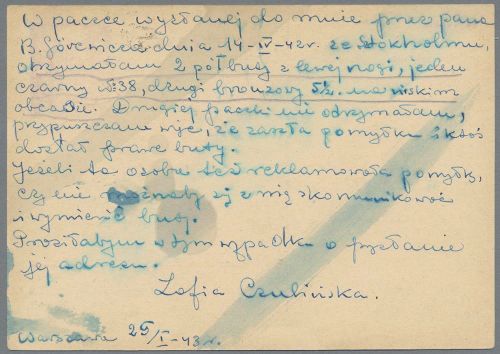 W paczce wysłanej do mnie przez pana
B. Górnickiego dnia 14-IV-42r. ze Stokholmu,
otrzymałam 2 półbuty z lewej nogi, jeden
czarny № 38, drugi bronzowy 5½. na niskim
obcasie. Drugiej paczki nie otrzymałam,
przypuszczam więc, że zaszła pomyłka i ktoś
dostał prawe buty.
Jeżeli ta osoba też reklamowała pomyłkę,
czy nie możnaby się z nią skomunikować
i wymienić buty.
Prosiłabym w tym wypadku o przysłanie
jej adresu.
Zofia Czubińska.
Warszawa 25/I-43r.